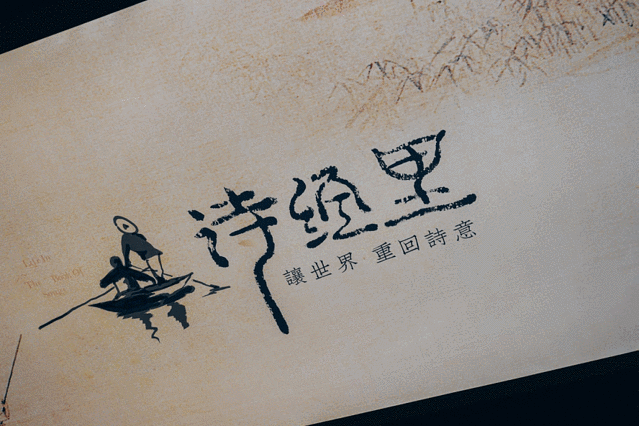 诗经里
讓世界 重回詩意
The Book Of
Songs